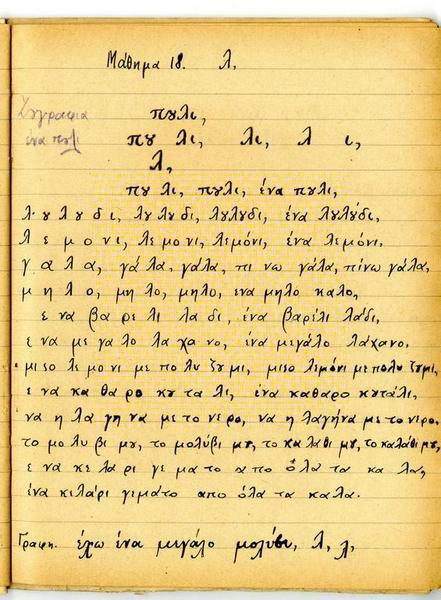 Μάθημα 18. λ,
Ζωγραφια
ένα πυλι
πυλι,
πυ λι, λι, λ ι,
λ,
πυ λι, πυλι, ένα πυλι,
λ υ λ υ δ ι, λυ λυ δι, λυλυδι, ένα λυλύδι,
λ ε μ ο ν ι, λε μο νι, λεμόνι, ένα λεμόνι,
γ α λ α, γά λα, γάλα, πι νω γάλα, πίνω γάλα,
μ η λ ο, μη λο, μηλο, ενα μηλο καλο,
ε να βα ρε λι λα δι, ένα βαρέλι λάδι,
ε να με γα λο λα χα νο, ένα μεγάλο λάχανο,
μι σο λε μο νι με πο λυ ζυ μι, μισο λεμόνι με πολυ ζυμι,
ε να κα θα ρο κυ τα λι, ένα καθαρο κυτάλι,
να η λα γη να με το νε ρο, να η λαγήνα με το νερο,
το μο λυ βι μυ, το μολύβι μυ, το κα λα θι μυ, το καλάθι μυ,
ε να κε λα ρι γε μα το απο όλα τα κα λα,
ένα κιλάρι γεμάτο απο όλα τα καλα.
Γραφη. έχω ένα μεγάλο μολύβι, λ, λ,